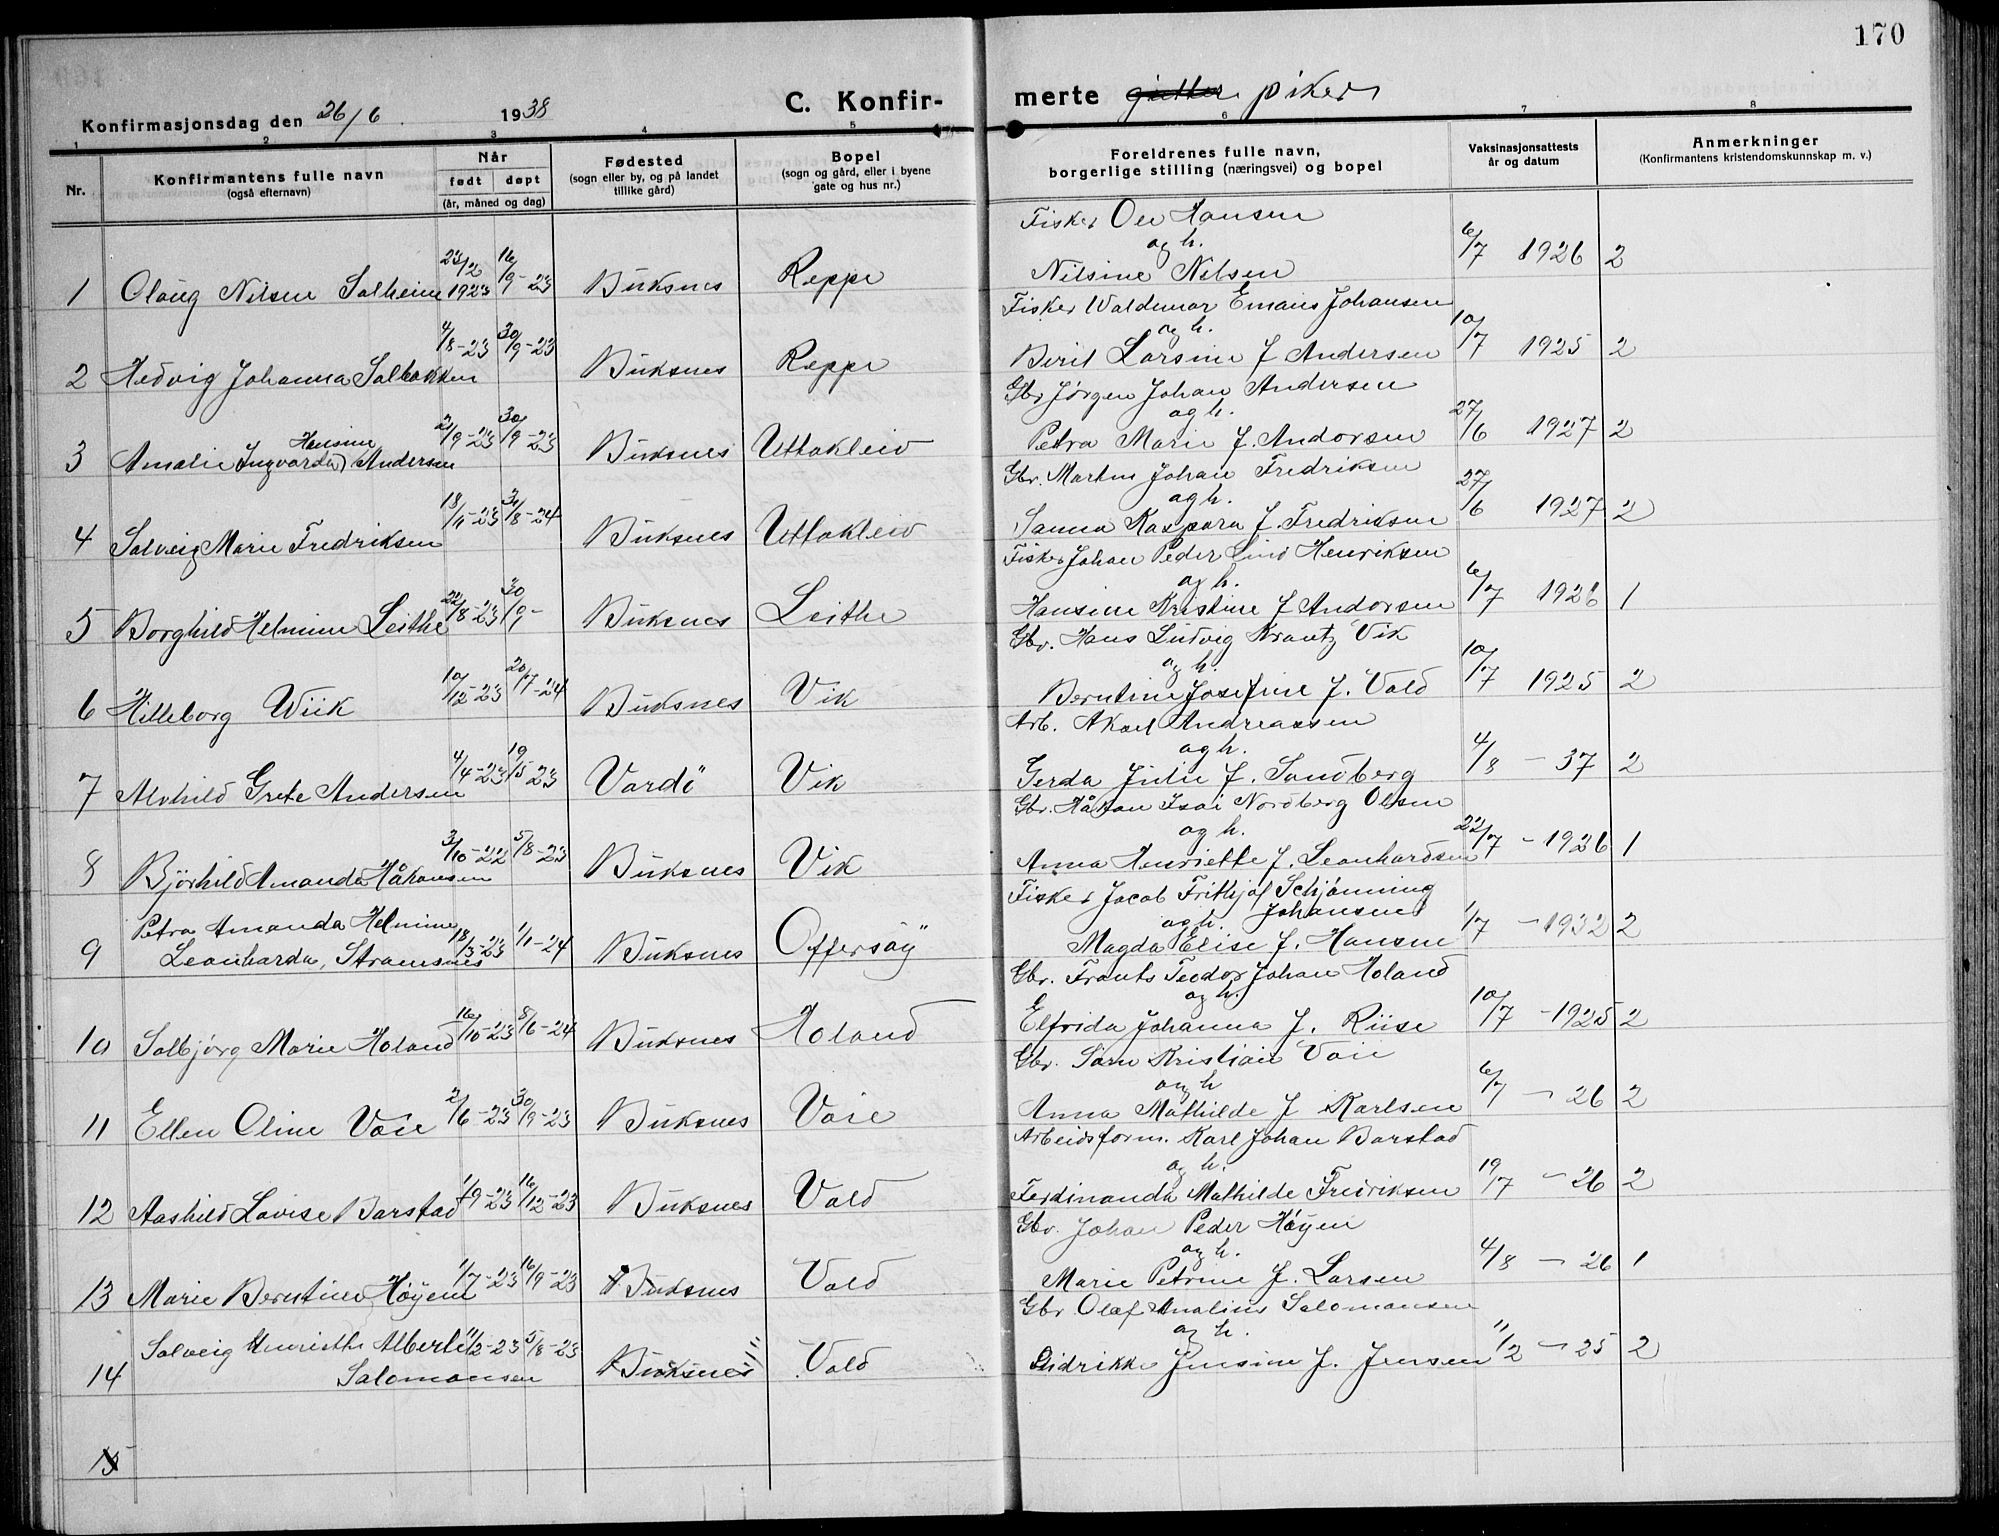 170
Konfirmasjonsdag den 26/6 1938
C. Konfir-merte gutter piker
1 2 3 4 5 6 7 8
Nr.
Konfirmantens fulle navn
(også efternavn)
Når
født døpt
(år, måned og dag)
Fødested
(sogn eller by, og på landet
tillike gård)
Bopel
(sogn og gård, eller i byene
gate og hus nr.)
Foreldrenes fulle navn,
borgerlige stilling (næringsvei) og bopel
Vaksinasjonsattests
år og datum
Anmerkninger
(Konfirmantens kristendomskunnskap m. v.)
Fisker Ole Hansen
og h.
1 Olaug Nilsen Solheim 23/2 1923 16/9-23 Buksnes Reppe Nilsine Nilsen 6/7 1926 2
Fisker Waldemar Emaus Johansen
og h.
2 Hedvig Johanna Solbakken 4/8-23 30/9-23 Buksnes Reppe Beril Larsine f Andersen 10/7 1925 2
Gbr Jørgen Johan Andersen
og h.
3 Amalie Ingvarda Hansine Andersen 2/9-23 30/9-23 Buksnes Uttakleiv Petra Marie f. Andorsen 27/6 1927 2
Gbr. Martin Johan Fredriksen
og h.
4 Solveig Marie Fredriksen 18/11-23 31/8-24 Buksnes Uttakleiv Sanna Kaspara f. Fredriksen 27/6 1927 2
Fisker Johan Peder Lind Henriksen
og h.
5 Borghild Helmine Leithe 22/8-23 30/9- Buksnes Leithe Hansine Kristine f Andorsen 6/7 1926 1
Gbr. Hans Ludvig Krantz Vik
og h.
6 Hilleborg Wiik 10/12-23 20/7-24 Buksnes Vik Berntine Josefine f. Vold 10/7 1925 2
Arb. Aksel Andreassen
og h.
7 Alvhild Grete Andersen 4/4-23 19/5-23 Vardö Vik Gerda Julie f. Sandberg 4/8 - 37 2
Gbr. Håkon Isai Nordberg Olsen
og h.
8 Bjørhild Amanda Håkonsen 3/10-22 5/8-23 Buksnes Vik Anna Henriette f. Leonhardsen 22/7 - 1926 1
Fisker Jacob Frithjof Schjønning
Johansen
og h.
Petra Amanda Helmine
9 Leonharda, Stramsnes 18/3-23 1/1-24 Buksnes Offersøy Magda Elise f. Hansen 1/7 - 1932 2
Gbr. Frants Teodor Johan Holand
og h.
10 Solbjørg Marie Holand 16/10-23 8/6-24 Buksnes Holand Elfrida Johanna f. Riise 10/7 - 1925 2
Gbr. Sørn Kristian Voie
og h
11 Ellen Oline Voie 2/6-23 30/9-23 Buksnes Voie Anna Mathilde f Karlsen 6/7 - 26 2
Arbeidsform. Karl Johan Barstad
og h.
12 Aashild Lovise Barstad 1/9-23 16/12-23 Buksnes Vold Ferdinanda Mathilde Fredriksen 19/7 - 26 2
Gbr. Johan Peder Høyen
og h.
13 Marie Berntine Høyen 1/7-23 16/9-23 Buksnes Vold Marie Petrine f. Larsen 4/8 - 26 1
Gbr. Olaf Analius Salomonsen
og h.
Solveig Henriette Alberte
14 Salomonsen 11/2-23 5/8-23 Buksnes Vold Didrikke Jensine f. Jensen 11/2 - 25 2
15